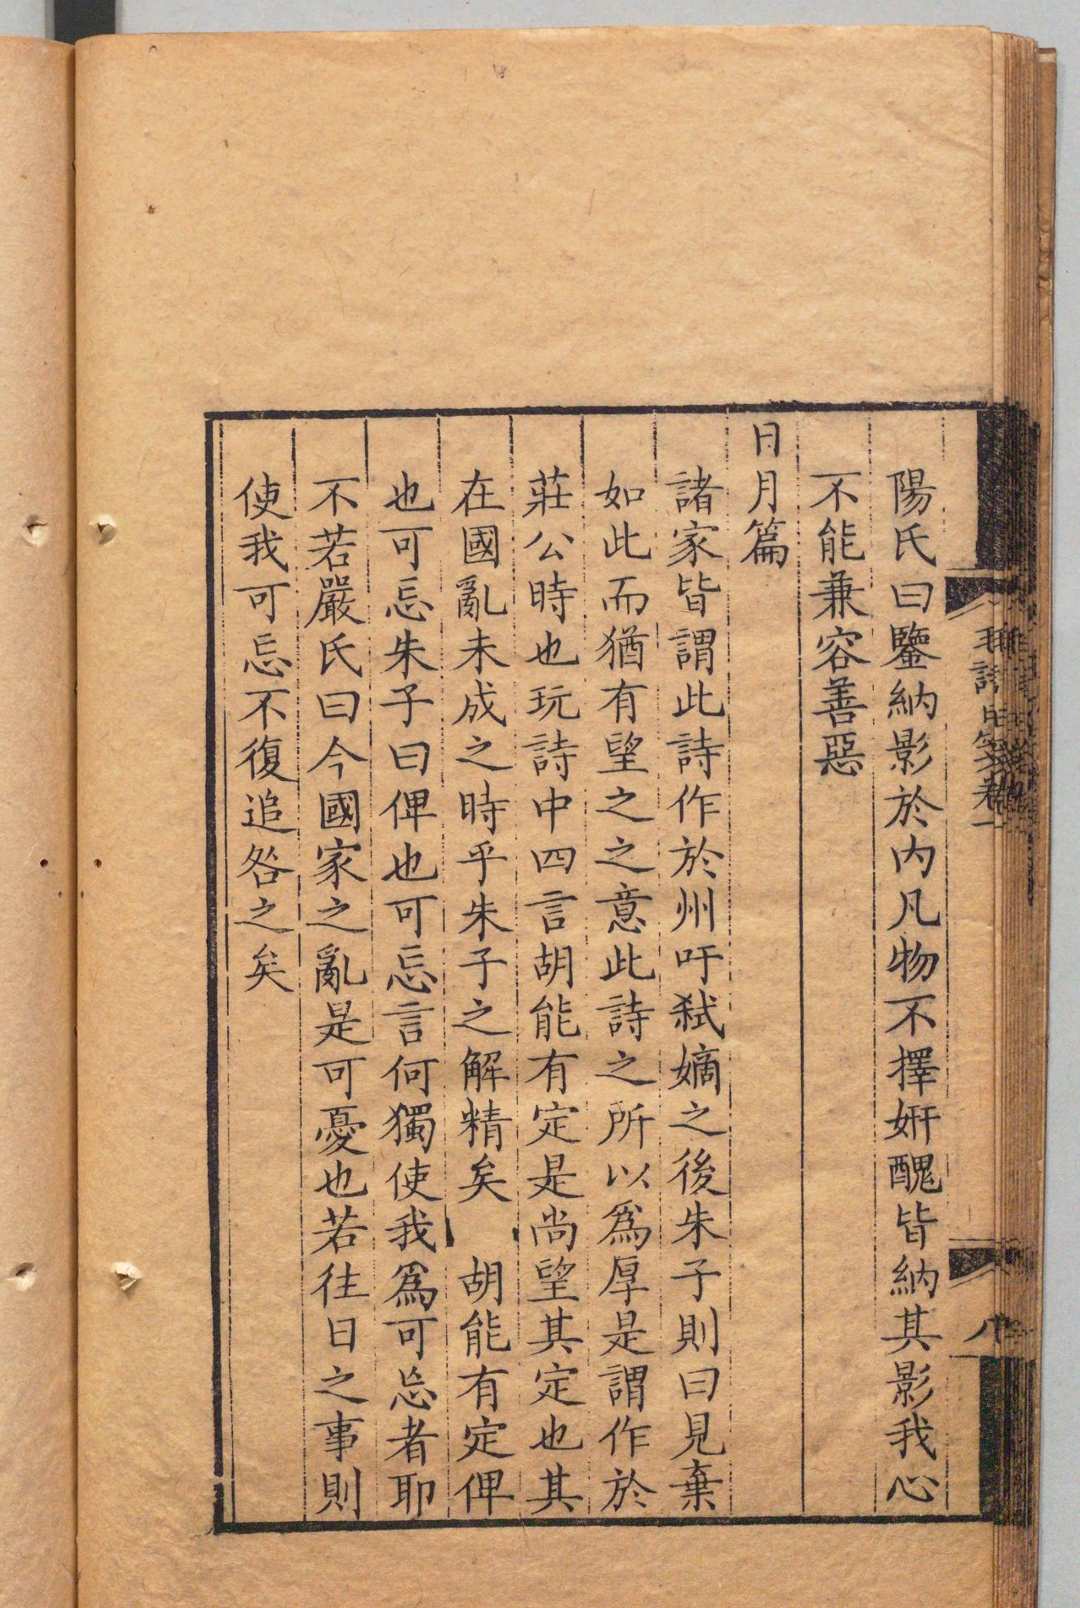 陽氏曰鑒納影於內凡物不擇姸醜皆納其影我心
不能兼容善惡
日月篇
諸家皆謂此詩作於州吁弑嫡之後朱子則曰見棄
如此而猶有望之之意此詩之所以爲厚是謂作於
莊公時也玩詩中四言胡能有定是尚望其定也其
在國亂未成之時乎朱子之解精矣 胡能有定俾
也可忘朱子曰俾也可忘言何獨使我爲可忘者耶
不若嚴氏曰今國家之亂是可憂也若往日之事則
使我可忘不復追咎之矣